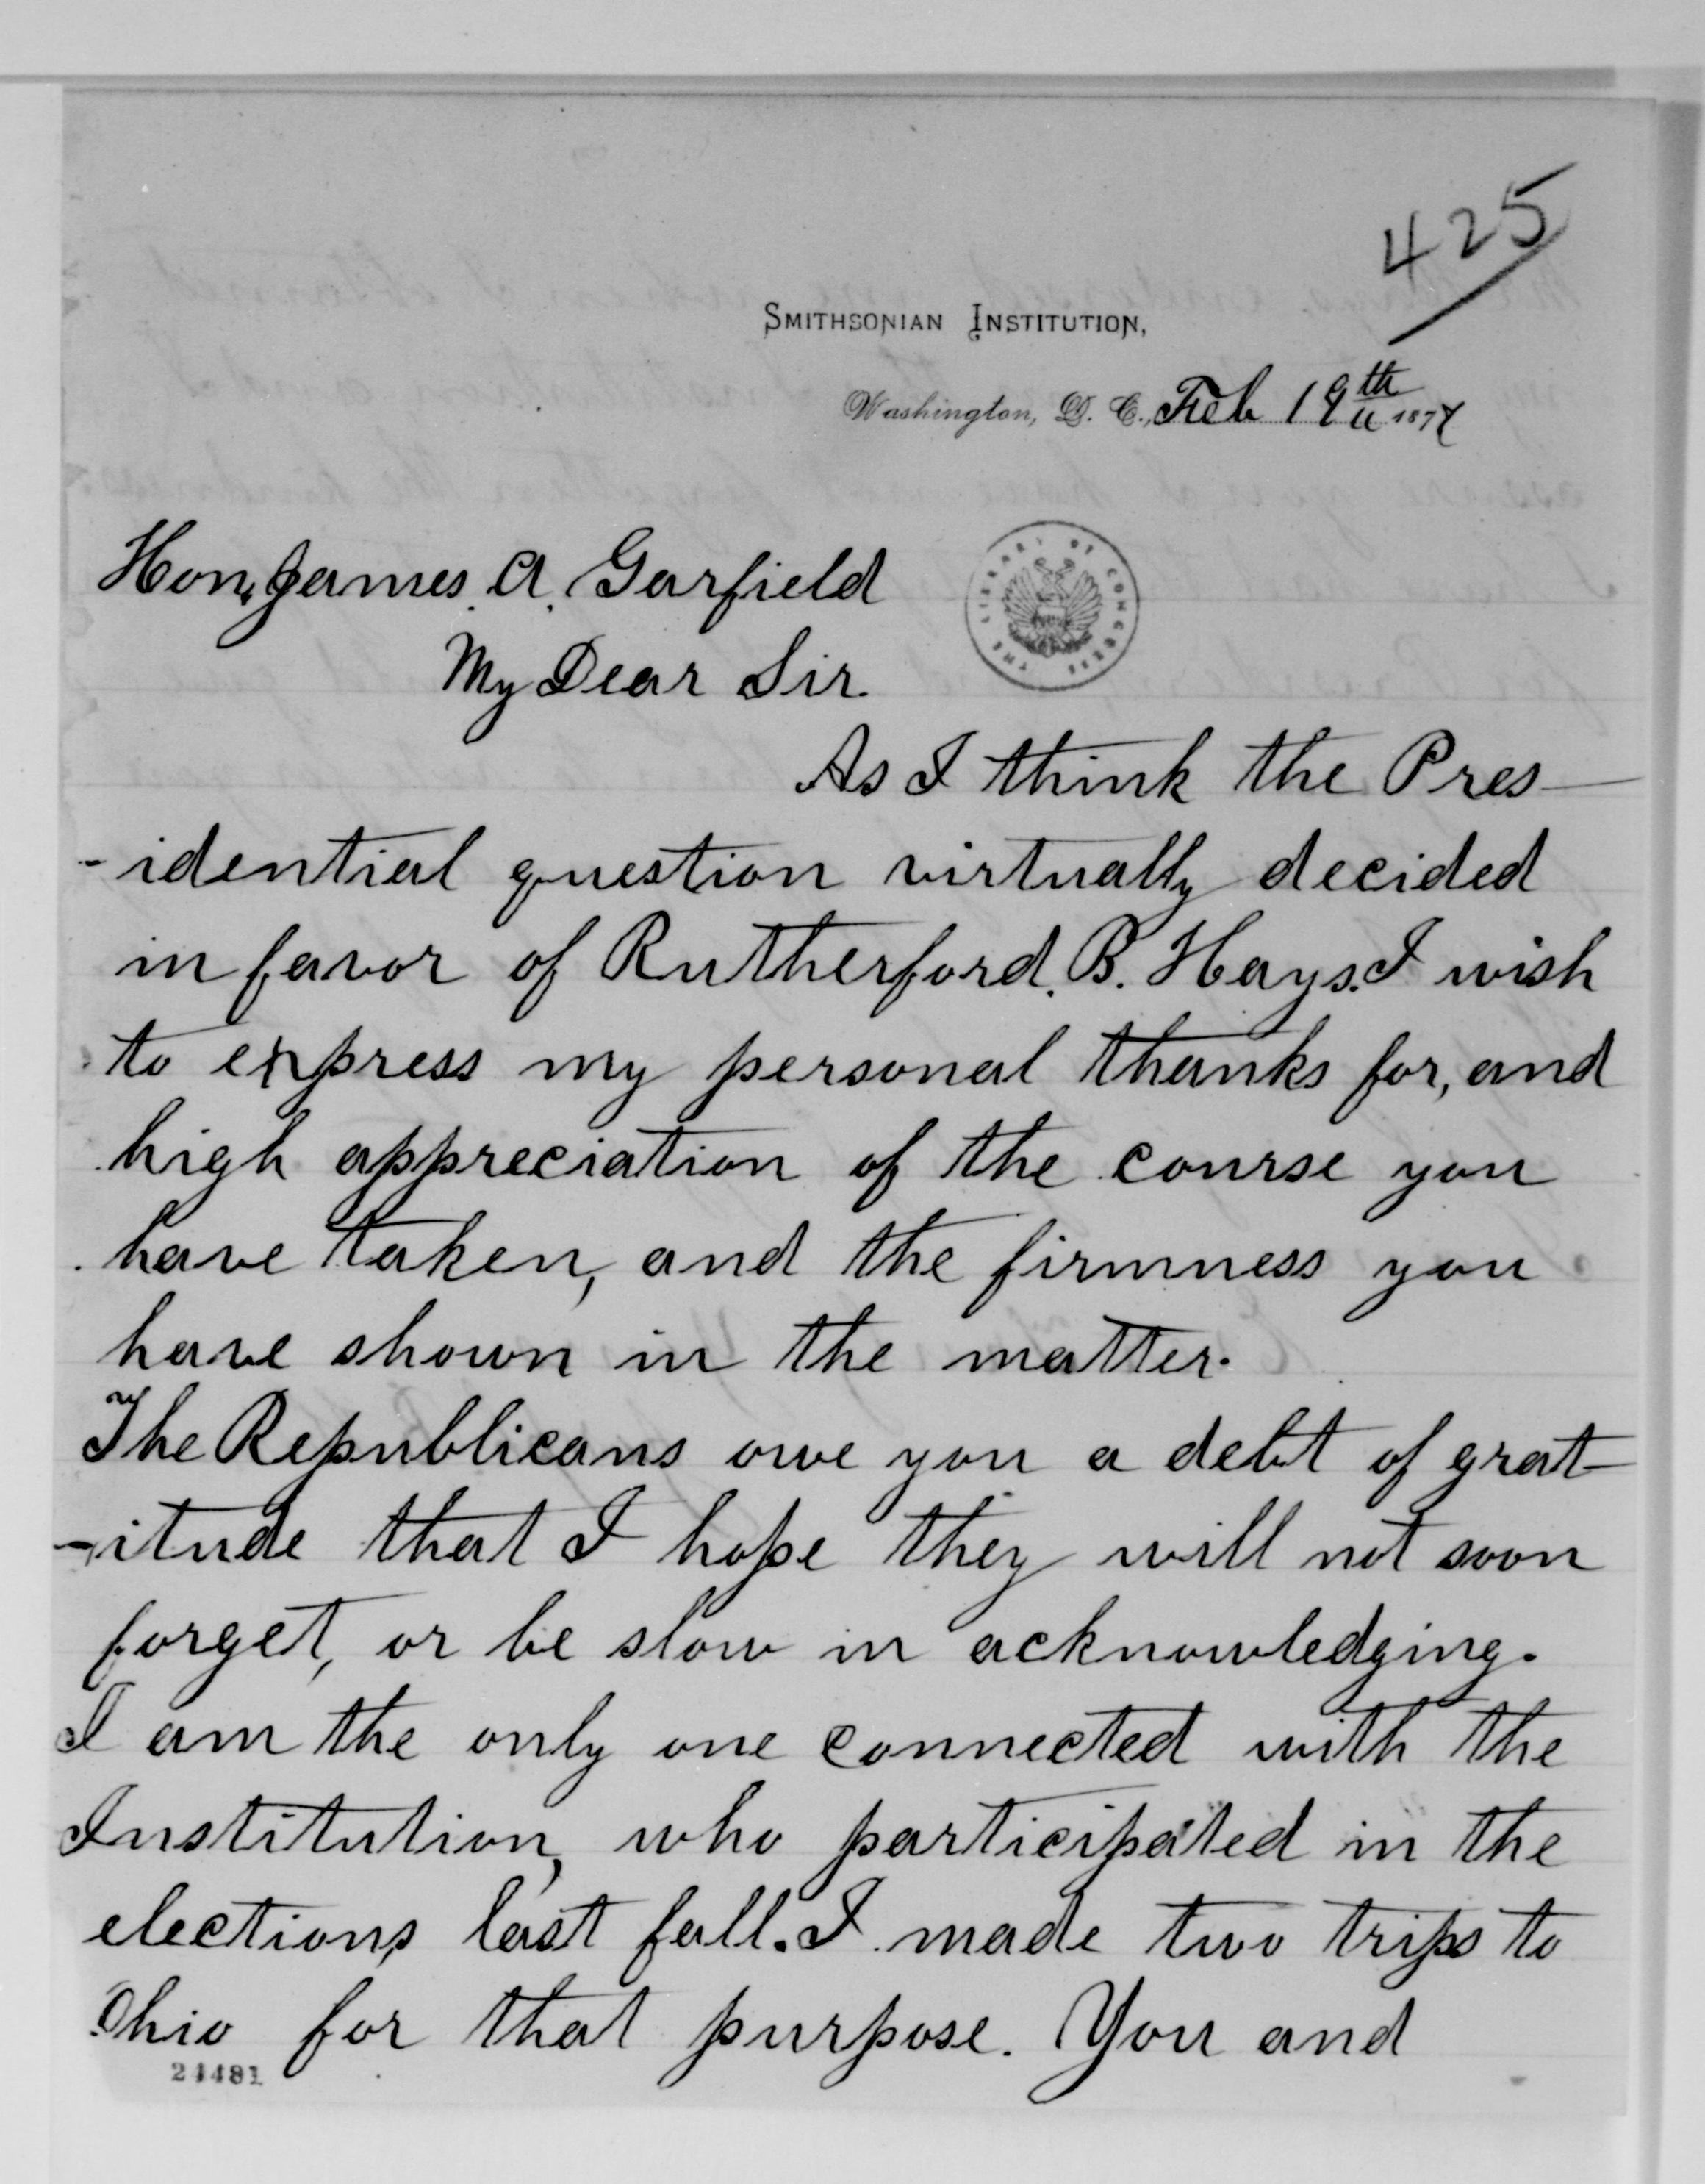 425
SMITHSONIAN INSTITUTION,
Washington, D. C., Feb 19th 1877
Hon, James. A. Garfield
THE LIBRARY OF CONGRESS
My Dear Sir.
As I think the Pres-
-idential question virtually decided
in favor of Rutherford. B. Hays. I wish
to express my personal thanks for, and
high appreciation of the course you
have taken, and the firmness you
have shown in the matter.
The Republicans owe you a debt of grat-
-itude that I hope they will not soon
forget, or be slow in acknowledging.
I am the only one connected with the
Institution, who participated in the
elections last fall. I made two trips to
Ohio for that purpose. You and
24481